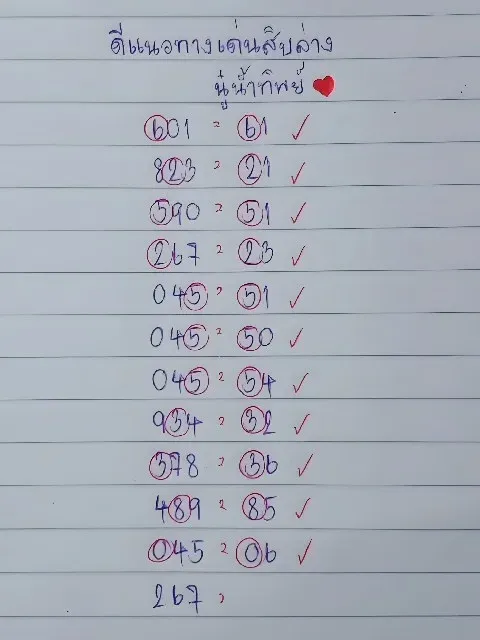 ดีแนวทางเด่นสิบล่าง
นู๋น้ำทิพย์
601 = 61 ✓
823 = 21 ✓
590 = 51 ✓
267 = 23 ✓
045 = 51 ✓
045 = 50 ✓
045 = 54 ✓
934 = 32 ✓
378 = 36 ✓
489 = 85 ✓
045 = 06 ✓
267 =